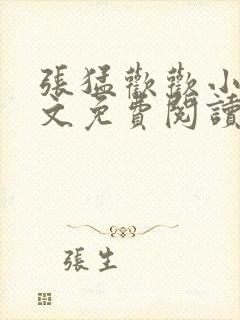 張猛歡歡小
文免費閱讀
張生